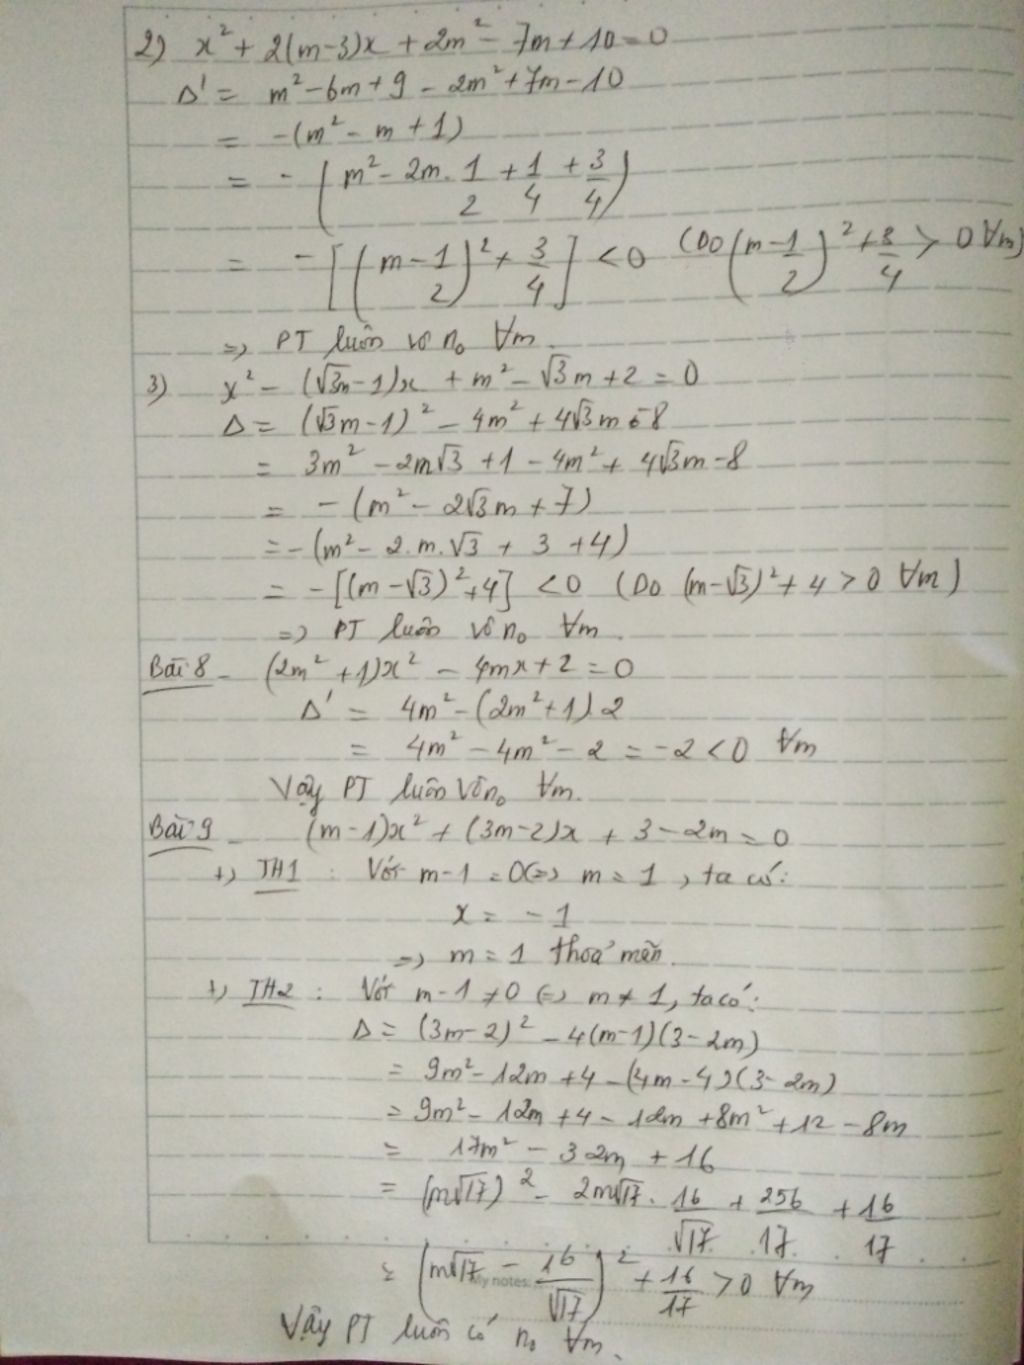 2) x² + 2(m-3)x + 2m² - 7m + 10 = 0
Δ' = m² - 6m + 9 - 2m² + 7m - 10
= -(m² - m + 1)
= -(m² - 2m. 1/2 + 1/4 + 3/4)
= -[(m - 1/2)² + 3/4] < 0 (Do (m - 1/2)² + 3/4 > 0 ∀m)
=> PT luôn vô n₀ ∀m.
3) x² - (√3m - 1)x + m² - √3m + 2 = 0
Δ = (√3m - 1)² - 4m² + 4√3m - 8
= 3m² - 2m√3 + 1 - 4m² + 4√3m - 8
= -(m² - 2√3m + 7)
= -(m² - 2.m.√3 + 3 + 4)
= -[(m - √3)² + 4] < 0 (Do (m - √3)² + 4 > 0 ∀m)
=> PT luôn vô n₀ ∀m.
Bài 8 - (2m² + 1)x² - 4mx + 2 = 0
Δ' = 4m² - (2m² + 1).2
= 4m² - 4m² - 2 = -2 < 0 ∀m
Vậy PT luôn vô n₀ ∀m.
Bài 9 - (m - 1)x² + (3m - 2)x + 3 - 2m = 0
+) TH1 : Với m - 1 = 0 <=> m = 1, ta có:
x = -1
=> m = 1 thoả mãn.
+) TH2 : Với m - 1 ≠ 0 <=> m ≠ 1, ta có:
Δ = (3m - 2)² - 4(m - 1)(3 - 2m)
= 9m² - 12m + 4 - (4m - 4)(3 - 2m)
= 9m² - 12m + 4 - 12m + 8m² + 12 - 8m
= 17m² - 32m + 16
= (m√17)² - 2m√17 . 16/√17 + 256/17 + 16/17
= (m√17 - 16/√17)² + 16/17 > 0 ∀m
My notes:
Vậy PT luôn có n₀ ∀m.